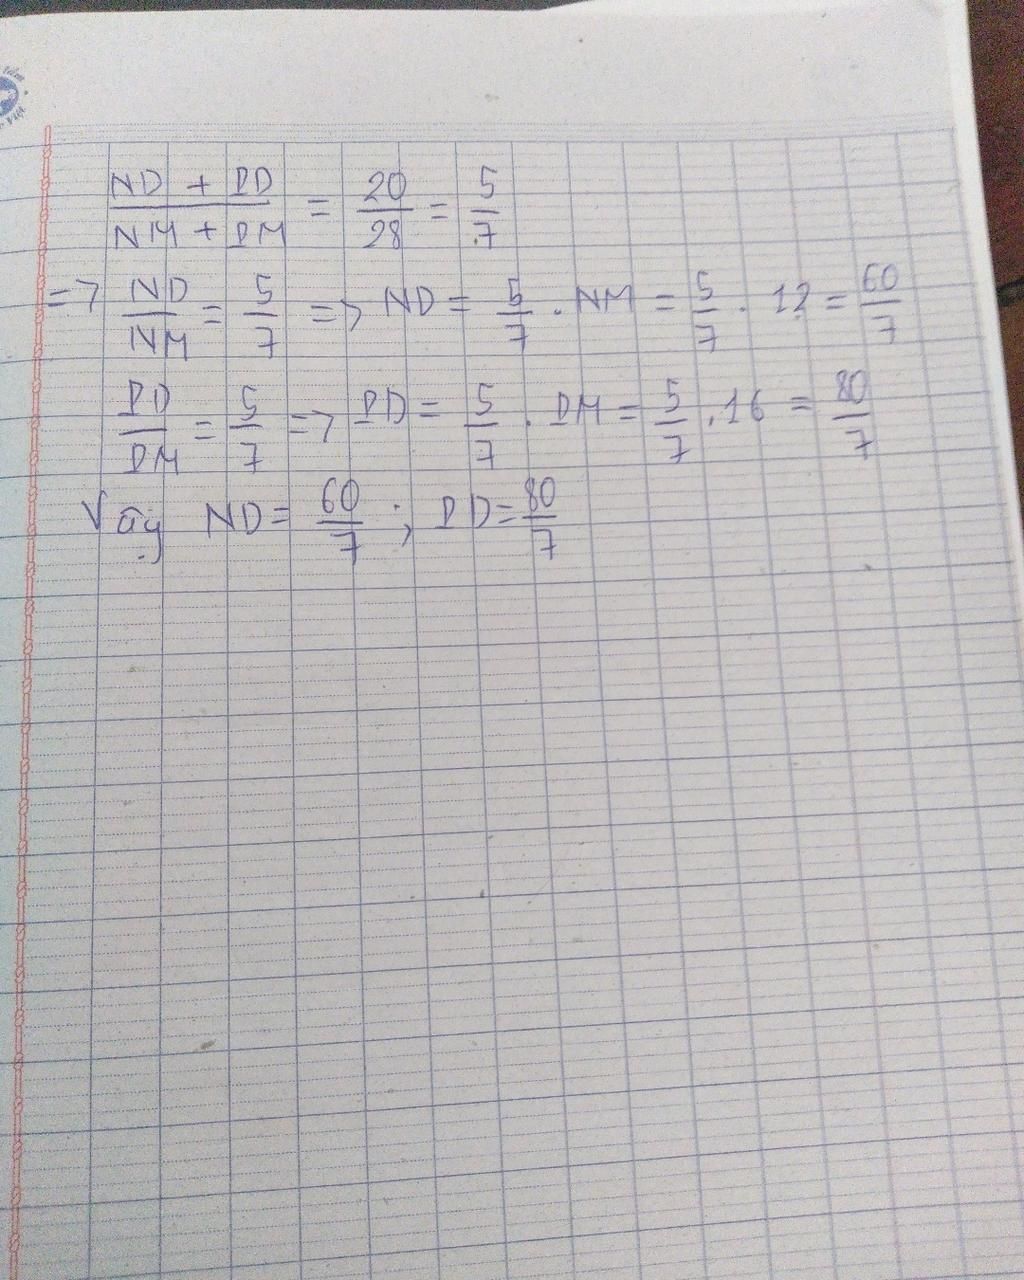 ND + PD / NM + PM = 20/28 = 5/7
=> ND/NM = 5/7 => ND = 5/7 . NM = 5/7 . 12 = 60/7
PD/PM = 5/7 => PD = 5/7 . PM = 5/7 . 16 = 80/7
Vậy ND = 60/7 ; PD = 80/7